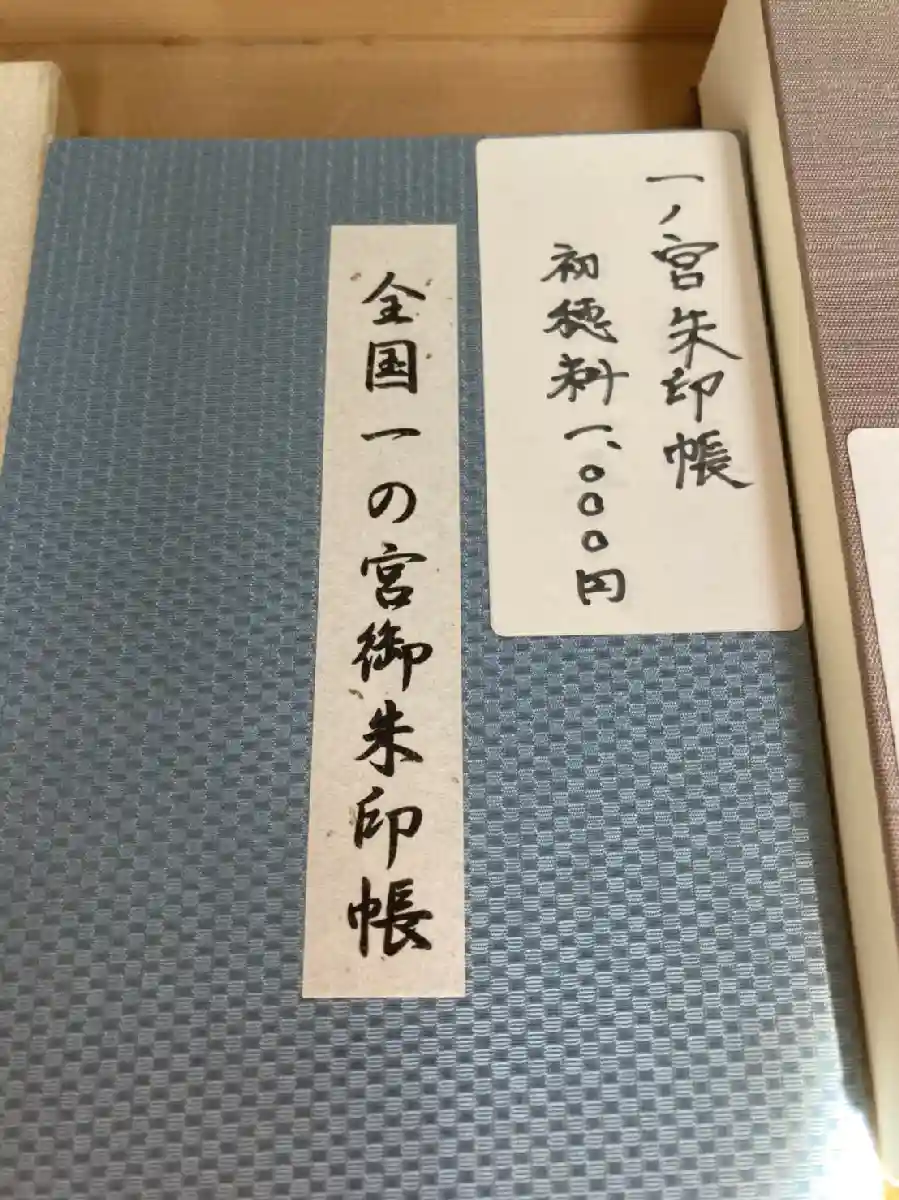 一ノ宮朱印帳
初穂料一、〇〇〇円
全国一の宮御朱印帳